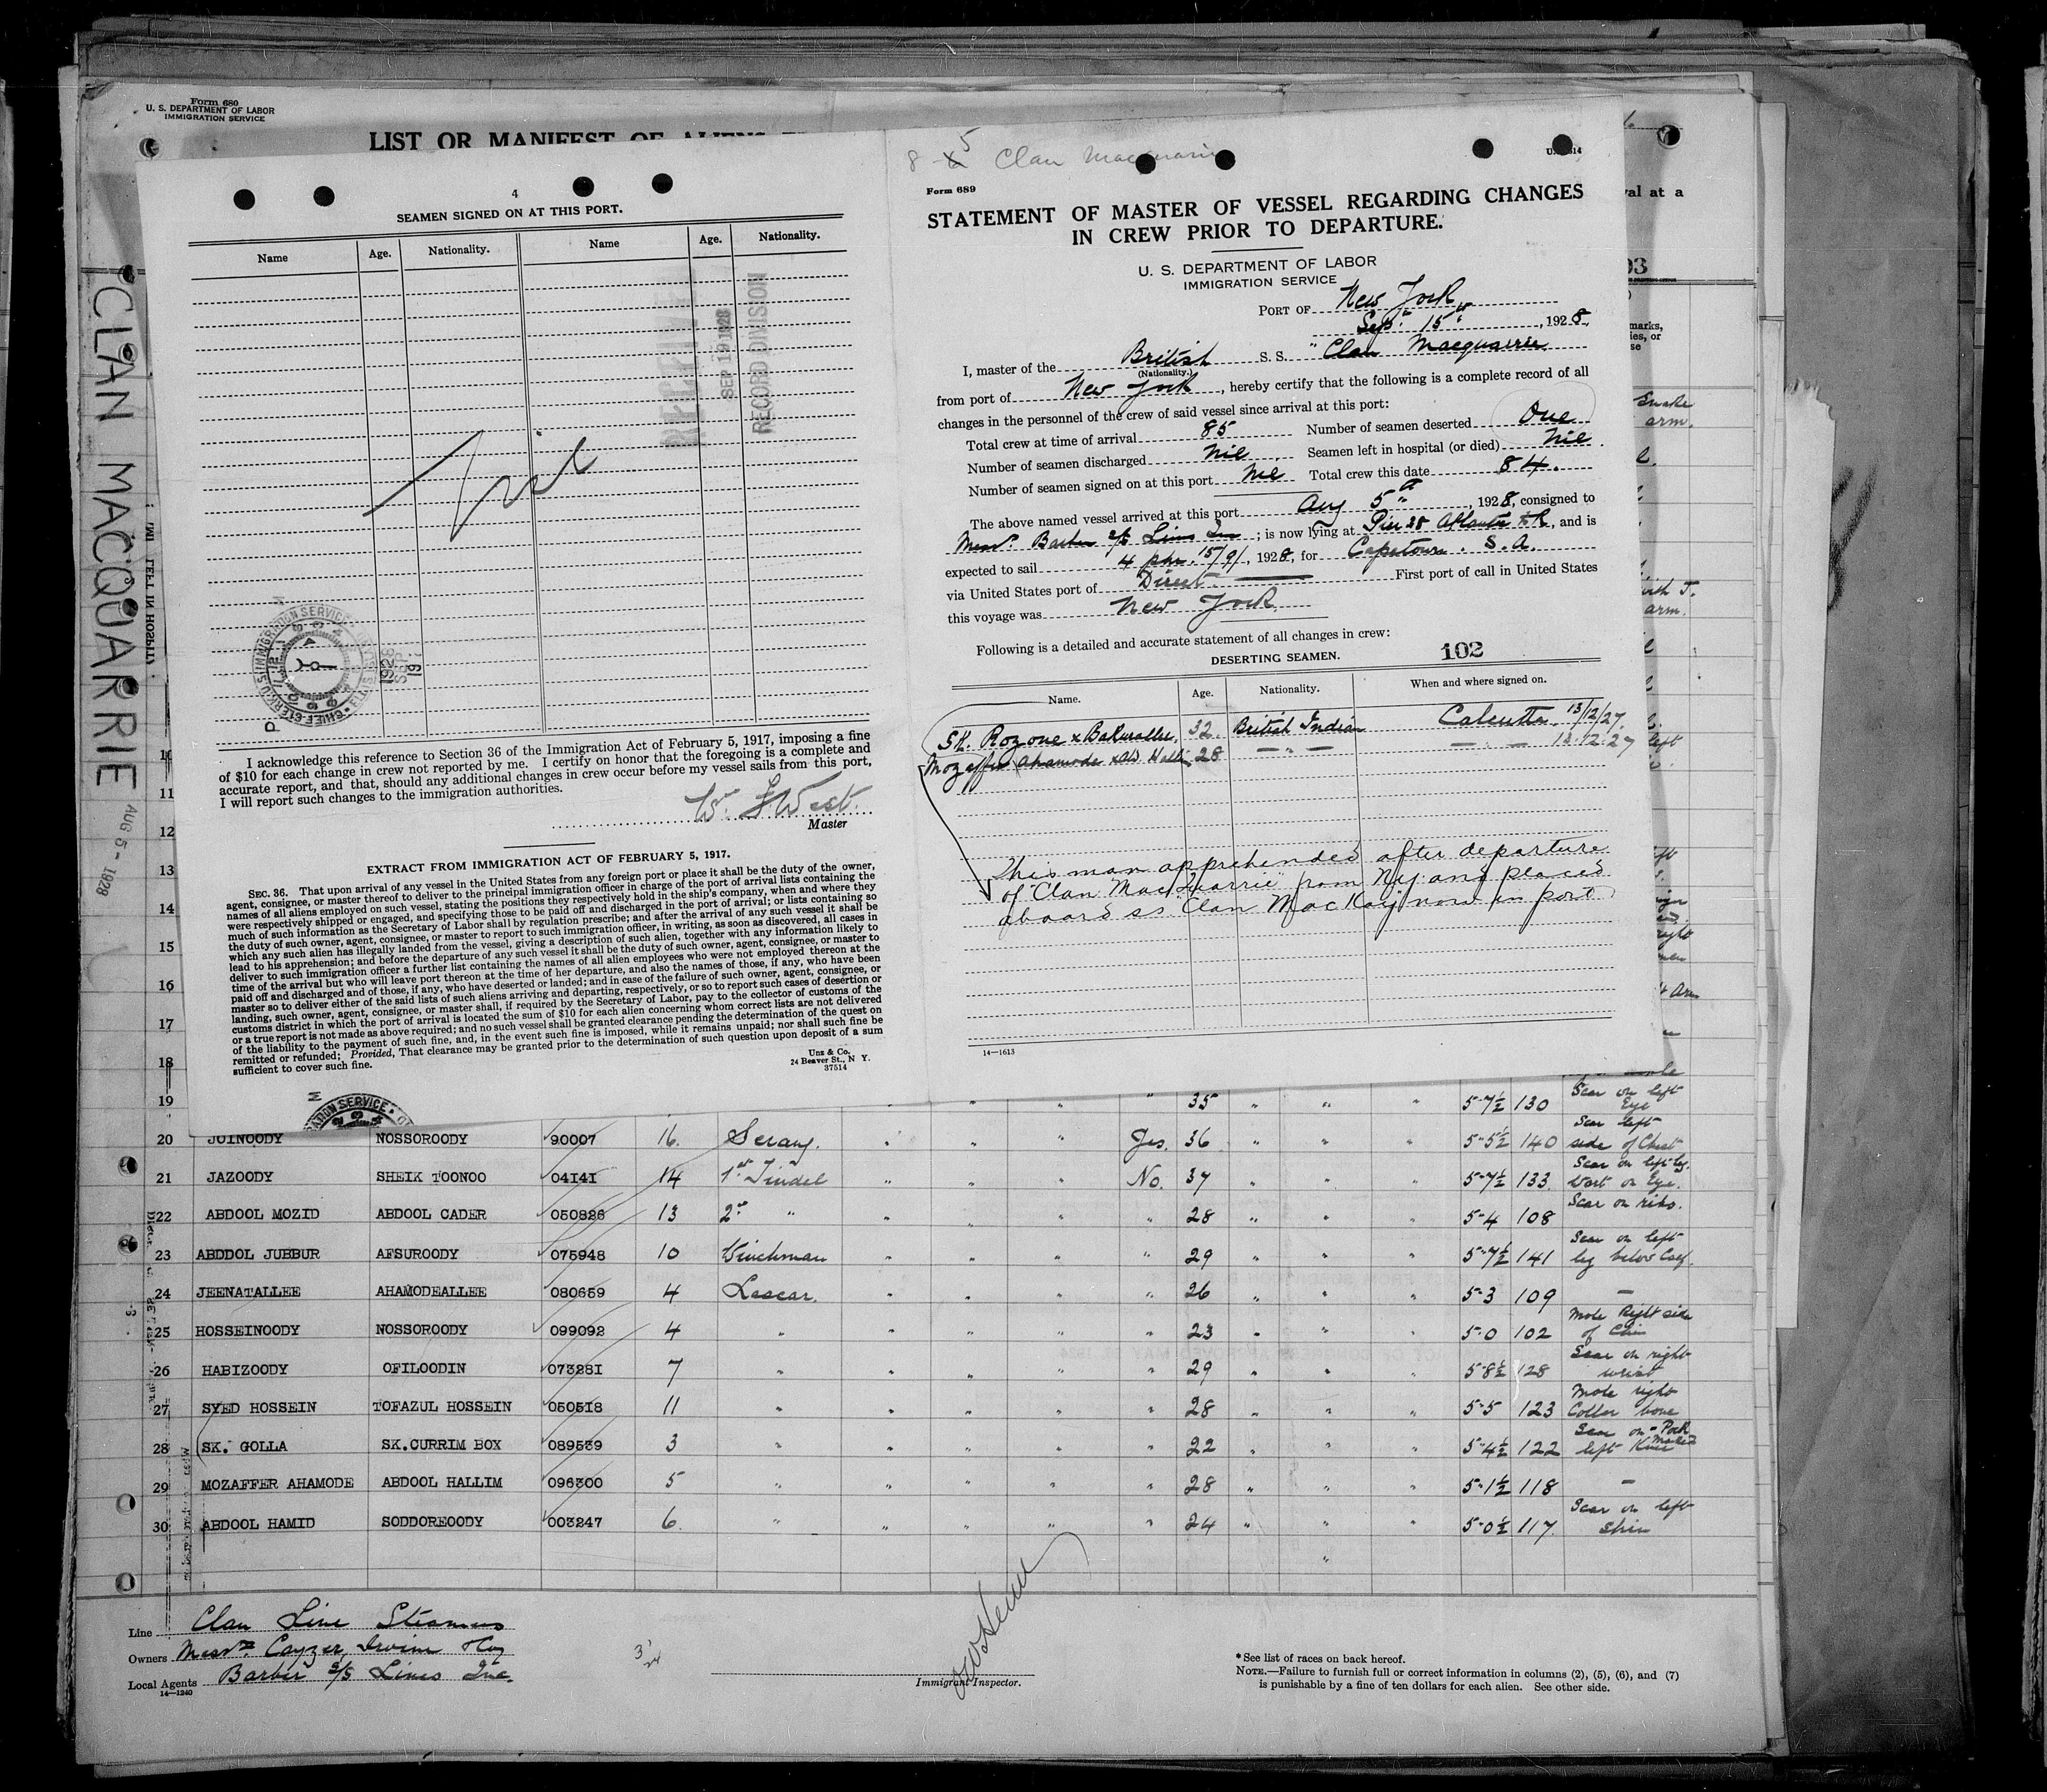 Form 680
U. S. DEPARTMENT OF LABOR
IMMIGRATION SERVICE
LIST OR MANIFEST OF ALIENS
CLAN MACQUARRIE
AUG 5 - 1928
4
SEAMEN SIGNED ON AT THIS PORT.
Name Age. Nationality. Name Age. Nationality.
RECEIVED
SEP 19 1928
RECORD DIVISION
Nil
I acknowledge this reference to Section 36 of the Immigration Act of February 5, 1917, imposing a fine
of $10 for each change in crew not reported by me. I certify on honor that the foregoing is a complete and
accurate report, and that, should any additional changes in crew occur before my vessel sails from this port,
I will report such changes to the immigration authorities.
West.
Master
EXTRACT FROM IMMIGRATION ACT OF FEBRUARY 5, 1917.
SEC. 36. That upon arrival of any vessel in the United States from any foreign port or place it shall be the duty of the owner,
agent, consignee, or master thereof to deliver to the principal immigration officer in charge of the port of arrival lists containing the
names of all aliens employed on such vessel, stating the positions they respectively hold in the ship's company, when and where they
were respectively shipped or engaged, and specifying those to be paid off and discharged in the port of arrival; or lists containing so
much of such information as the Secretary of Labor shall by regulation prescribe; and after the arrival of any such vessel it shall be
the duty of such owner, agent, consignee, or master to report to such immigration officer, in writing, as soon as discovered, all cases in
which any such alien has illegally landed from the vessel, giving a description of such alien, together with any information likely to
lead to his apprehension; and before the departure of any such vessel it shall be the duty of such owner, agent, consignee, or master to
deliver to such immigration officer a further list containing the names of all alien employees who were not employed thereon at the
time of the arrival but who will leave port thereon at the time of her departure, and also the names of those, if any, who have been
paid off and discharged and of those, if any, who have deserted or landed; and in case of the failure of such owner, agent, consignee, or
master so to deliver either of the said lists of such aliens arriving and departing, respectively, or so to report such cases of desertion or
landing, such owner, agent, consignee, or master shall, if required by the Secretary of Labor, pay to the collector of customs of the
customs district in which the port of arrival is located the sum of $10 for each alien concerning whom correct lists are not delivered
or a true report is not made as above required; and no such vessel shall be granted clearance pending the determination of the quest on
of the liability to the payment of such fine, and, in the event such fine is imposed, while it remains unpaid; nor shall such fine be
remitted or refunded; Provided, That clearance may be granted prior to the determination of such question upon deposit of a sum
sufficient to cover such fine.
Unz & Co.
24 Beaver St., N Y.
37514
8 5 Clan Macquarrie
Form 689
STATEMENT OF MASTER OF VESSEL REGARDING CHANGES
IN CREW PRIOR TO DEPARTURE.
U. S. DEPARTMENT OF LABOR
IMMIGRATION SERVICE
PORT OF New York
Sept. 15th, 1928.
I, master of the British S. S. "Clan Macquarrie
(Nationality.)
from port of New York, hereby certify that the following is a complete record of all
changes in the personnel of the crew of said vessel since arrival at this port:
Total crew at time of arrival 85 Number of seamen deserted One
Number of seamen discharged Nil. Seamen left in hospital (or died) Nil.
Number of seamen signed on at this port Nil Total crew this date 84.
The above named vessel arrived at this port Aug 5th, 1928, consigned to
Messrs. Barber S/S Lines Inc; is now lying at Pier 28 Atlantic, and is
expected to sail 4 pm. 15/9/, 1928, for Capetown. S.A.
via United States port of Direct First port of call in United States
this voyage was New York
Following is a detailed and accurate statement of all changes in crew:
DESERTING SEAMEN. 102
Name. Age. Nationality. When and where signed on.
Sk. Rozone x Bakurallee 32. British Indian Calcutta 13/12/27.
Mozaffer Ahamode x Abd Hallim 28 — " — — " — 12.12.27
This man apprehended after departure
of "Clan MacQuarrie" from NY and placed
aboard ss "Clan MacKay" now in port
14—1613
19 " " " " 35 " " " 5-7½ 130 Scar on left Eye
20 JOINOODY NOSSOROODY 90007 16. Serang. " " " Yes. 36 " " " 5-5½ 140 Scar left side of Chest
21 JAZOODY SHEIK TOONOO 04141 14 1st Tindel " " " No. 37 " " " 5-7½ 133. Scar on left leg. Wart on Eye.
22 ABDOOL MOZID ABDOOL CADER 050826 13 2nd " " " " " 28 " " " 5-4 108 Scar on ribs.
23 ABDDOL JUBBUR AFSUROODY 075948 10 Winchman " " " " 29 " " " 5-7½ 141 Scar on left leg below Calf.
24 JEENATALLEE AHAMODEALLEE 080659 4 Lascar. " " " " 26 " " " 5-3 109 —
25 HOSSEINOODY NOSSOROODY 099092 4 " " " " " 23 " " " 5-0 102 Mole Right side of Chin
26 HABIZOODY OFILOODIN 073281 7 " " " " " 29 " " " 5-8½ 128 Scar on right wrist
27 SYED HOSSEIN TOFAZUL HOSSEIN 050518 11 " " " " " 28 " " " 5-5 123 Mole right Collar bone
28 SK. GOLLA SK.CURRIM BOX 089539 3 " " " " " 22 " " " 5-4½ 122 Scar on left Knee - Pock Marked
29 MOZAFFER AHAMODE ABDOOL HALLIM 096300 5 " " " " " 28 " " " 5-1½ 118 —
30 ABDOOL HAMID SODDOREOODY 003247 6 " " " " " 24 " " " 5-0½ 117. Scar on left Shin
Line Clan Line Steamers
Owners Messrs Cayzer, Irvine & Coy
Local Agents Barber S/S Lines Inc.
14—1240
Immigrant Inspector.
*See list of races on back hereof.
NOTE.—Failure to furnish full or correct information in columns (2), (5), (6), and (7)
is punishable by a fine of ten dollars for each alien. See other side.